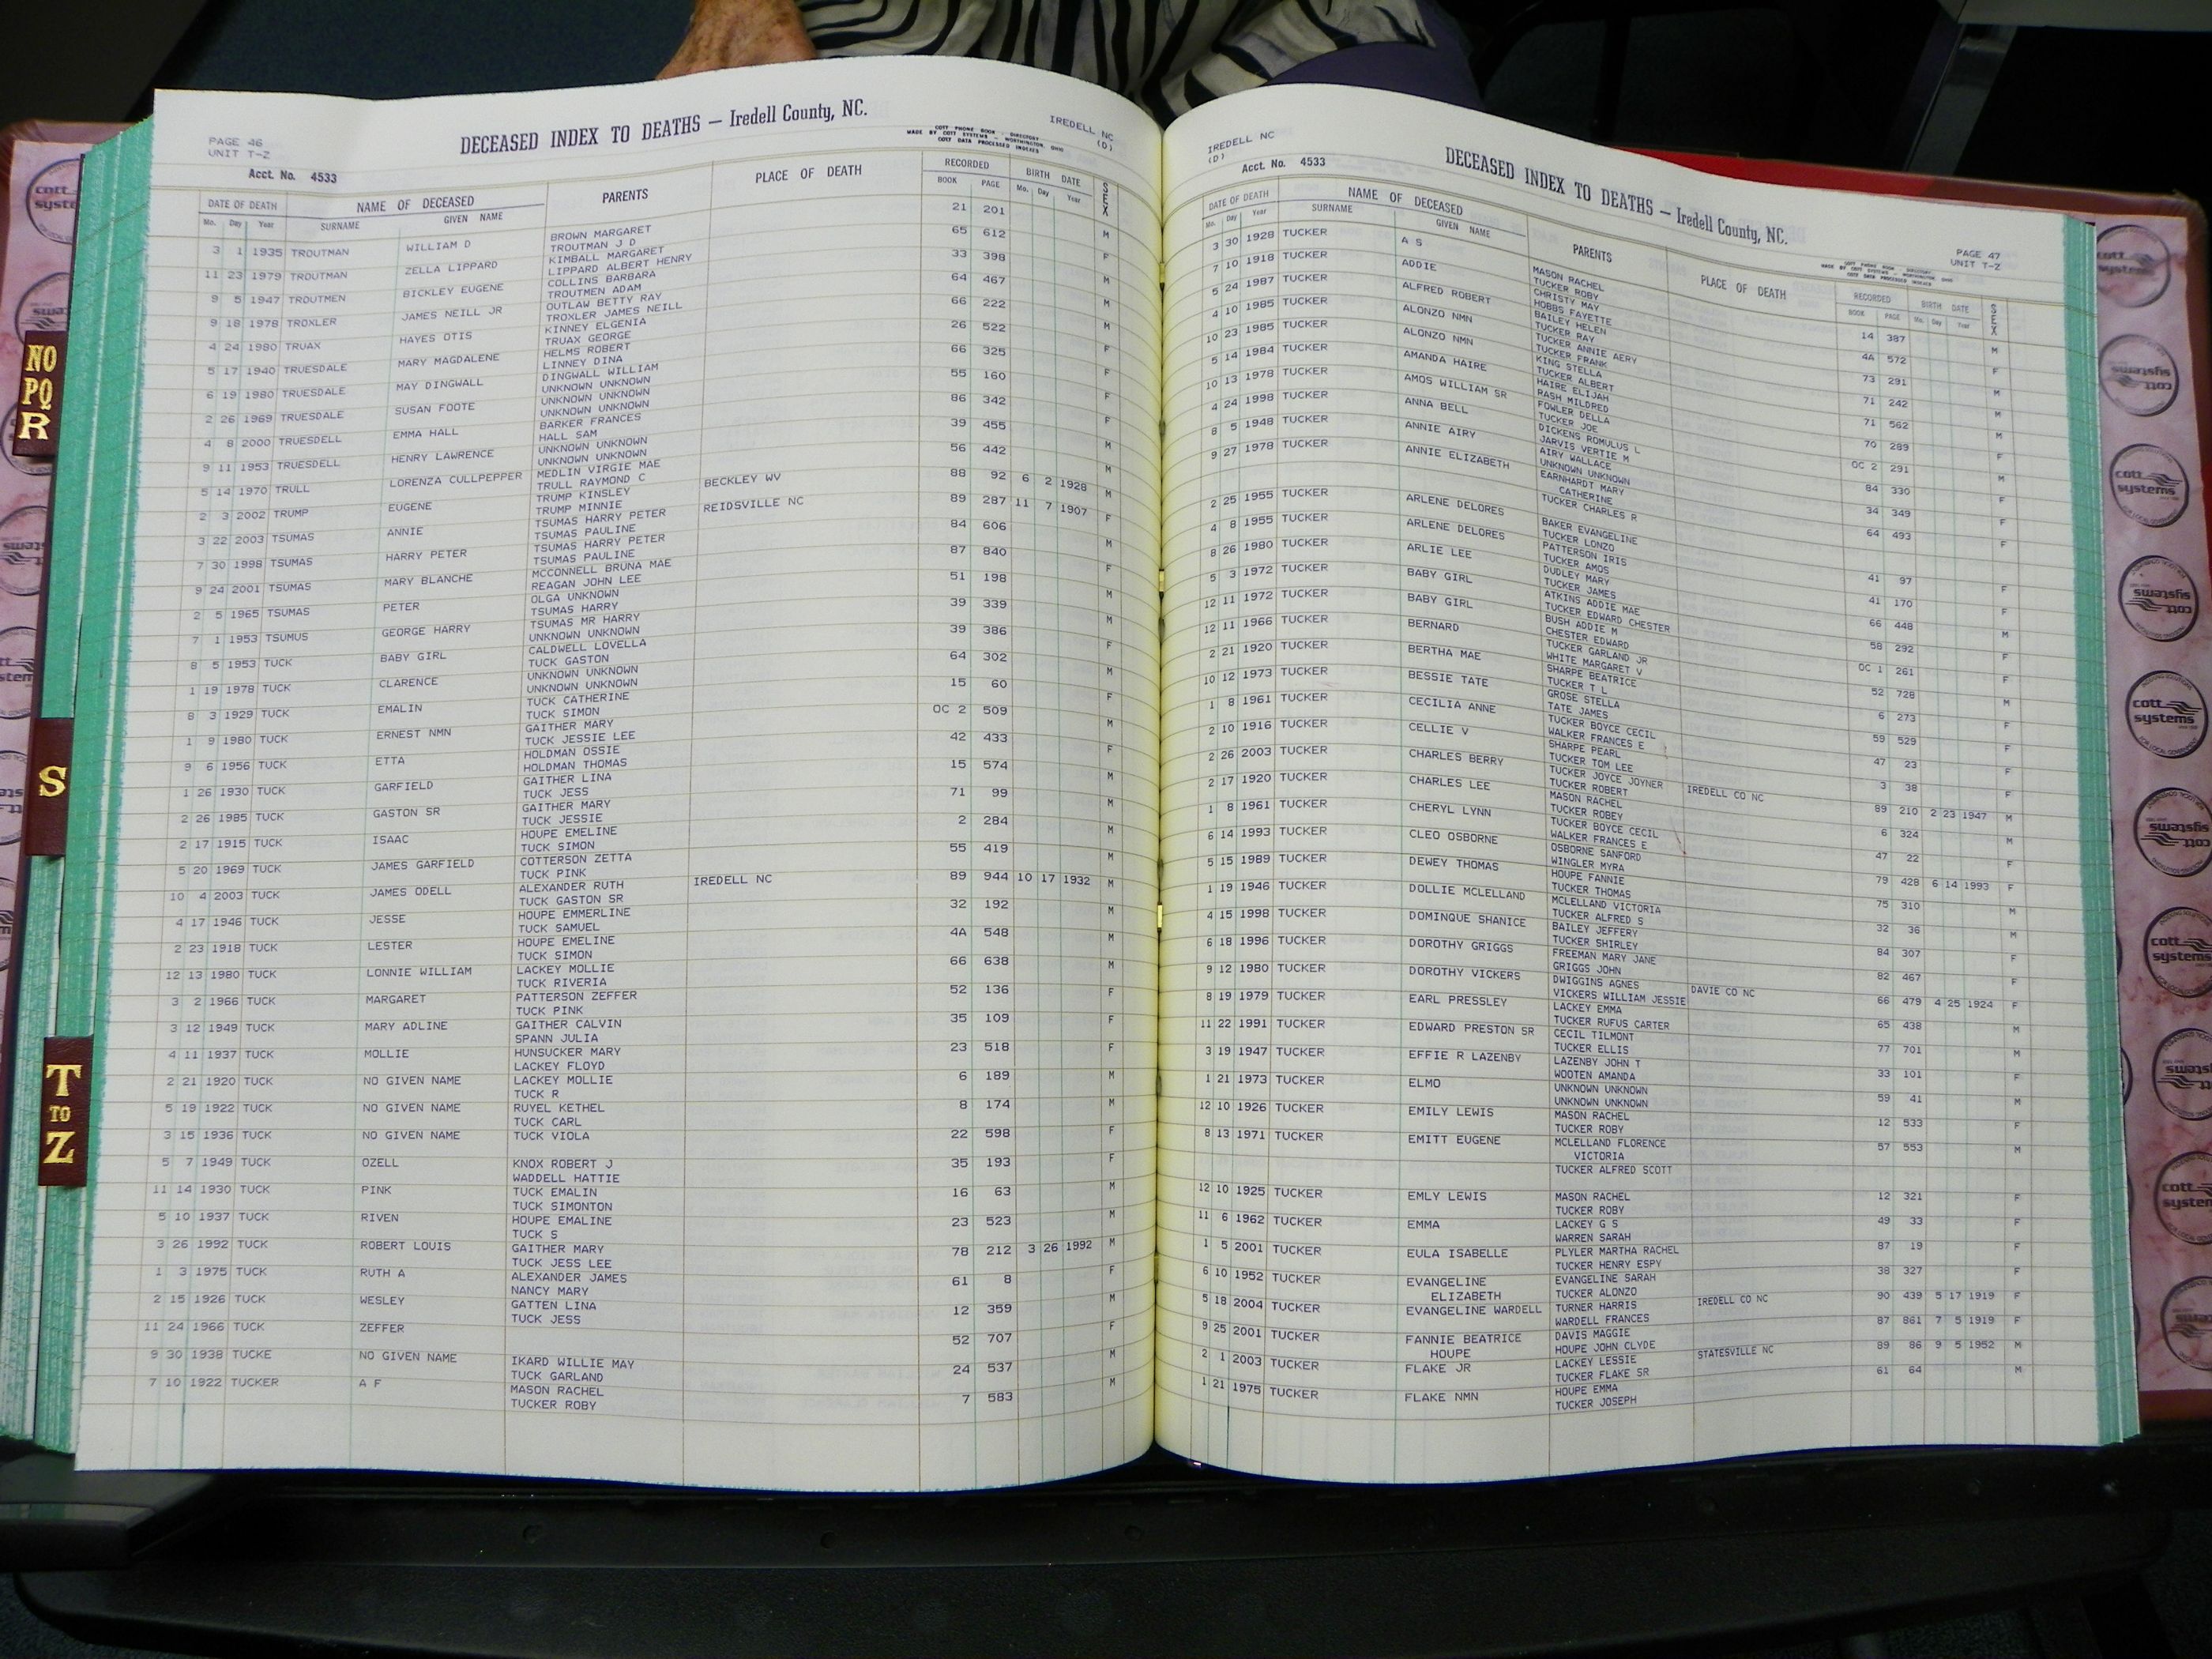 PAGE 46
UNIT T-Z
DECEASED INDEX TO DEATHS — Iredell County, NC.
COTT PHONE BOOK - DIRECTORY
MADE BY COTT SYSTEMS - WORTHINGTON, OHIO
COTT DATA PROCESSED INDEXES
IREDELL NC
(D)
Acct. No. 4533
DATE OF DEATH NAME OF DECEASED PARENTS PLACE OF DEATH RECORDED BIRTH DATE SEX
Mo. Day Year SURNAME GIVEN NAME BOOK PAGE Mo. Day Year
3 1 1935 TROUTMAN WILLIAM D BROWN MARGARET 21 201 M
TROUTMAN J D
11 23 1979 TROUTMAN ZELLA LIPPARD KIMBALL MARGARET 65 612 F
LIPPARD ALBERT HENRY
9 5 1947 TROUTMEN BICKLEY EUGENE COLLINS BARBARA 33 398 M
TROUTMEN ADAM
9 18 1978 TROXLER JAMES NEILL JR OUTLAW BETTY RAY 64 467 M
TROXLER JAMES NEILL
4 24 1980 TRUAX HAYES OTIS KINNEY ELGENIA 66 222 M
TRUAX GEORGE
5 17 1940 TRUESDALE MARY MAGDALENE HELMS ROBERT 26 522 F
LINNEY DINA
6 19 1980 TRUESDALE MAY DINGWALL DINGWALL WILLIAM 66 325 F
UNKNOWN UNKNOWN
2 26 1969 TRUESDALE SUSAN FOOTE UNKNOWN UNKNOWN 55 160 F
UNKNOWN UNKNOWN
4 8 2000 TRUESDELL EMMA HALL BARKER FRANCES 86 342 F
HALL SAM
9 11 1953 TRUESDELL HENRY LAWRENCE UNKNOWN UNKNOWN 39 455 M
UNKNOWN UNKNOWN
5 14 1970 TRULL LORENZA CULLPEPPER MEDLIN VIRGIE MAE 56 442 M
TRULL RAYMOND C
2 3 2002 TRUMP EUGENE TRUMP KINSLEY BECKLEY WV 88 92 6 2 1928 M
TRUMP MINNIE
3 22 2003 TSUMAS ANNIE TSUMAS HARRY PETER REIDSVILLE NC 89 287 11 7 1907 F
TSUMAS PAULINE
7 30 1998 TSUMAS HARRY PETER TSUMAS HARRY PETER 84 606 M
TSUMAS PAULINE
9 24 2001 TSUMAS MARY BLANCHE MCCONNELL BRUNA MAE 87 840 F
REAGAN JOHN LEE
2 5 1965 TSUMAS PETER OLGA UNKNOWN 51 198 M
TSUMAS HARRY
7 1 1953 TSUMUS GEORGE HARRY TSUMAS MR HARRY 39 339 M
UNKNOWN UNKNOWN
8 5 1953 TUCK BABY GIRL CALDWELL LOVELLA 39 386 F
TUCK GASTON
1 19 1978 TUCK CLARENCE UNKNOWN UNKNOWN 64 302 M
UNKNOWN UNKNOWN
8 3 1929 TUCK EMALIN TUCK CATHERINE 15 60 F
TUCK SIMON
1 9 1980 TUCK ERNEST NMN GAITHER MARY OC 2 509 M
TUCK JESSIE LEE
9 6 1956 TUCK ETTA HOLDMAN OSSIE 42 433 F
HOLDMAN THOMAS
1 26 1930 TUCK GARFIELD GAITHER LINA 15 574 M
TUCK JESS
2 26 1985 TUCK GASTON SR GAITHER MARY 71 99 M
TUCK JESSIE
2 17 1915 TUCK ISAAC HOUPE EMELINE 2 284 M
TUCK SIMON
5 20 1969 TUCK JAMES GARFIELD COTTERSON ZETTA 55 419 M
TUCK PINK
10 4 2003 TUCK JAMES ODELL ALEXANDER RUTH IREDELL NC 89 944 10 17 1932 M
TUCK GASTON SR
4 17 1946 TUCK JESSE HOUPE EMMERLINE 32 192 M
TUCK SAMUEL
2 23 1918 TUCK LESTER HOUPE EMELINE 4A 548 M
TUCK SIMON
12 13 1980 TUCK LONNIE WILLIAM LACKEY MOLLIE 66 638 M
TUCK RIVERIA
3 2 1966 TUCK MARGARET PATTERSON ZEFFER 52 136 F
TUCK PINK
3 12 1949 TUCK MARY ADLINE GAITHER CALVIN 35 109 F
SPANN JULIA
4 11 1937 TUCK MOLLIE HUNSUCKER MARY 23 518 F
LACKEY FLOYD
2 21 1920 TUCK NO GIVEN NAME LACKEY MOLLIE 6 189 M
TUCK R
5 19 1922 TUCK NO GIVEN NAME RUYEL KETHEL 8 174 M
TUCK CARL
3 15 1936 TUCK NO GIVEN NAME TUCK VIOLA 22 598 F
5 7 1949 TUCK OZELL KNOX ROBERT J 35 193 F
WADDELL HATTIE
11 14 1930 TUCK PINK TUCK EMALIN 16 63 M
TUCK SIMONTON
5 10 1937 TUCK RIVEN HOUPE EMALINE 23 523 M
TUCK S
3 26 1992 TUCK ROBERT LOUIS GAITHER MARY 78 212 3 26 1992 M
TUCK JESS LEE
1 3 1975 TUCK RUTH A ALEXANDER JAMES 61 8 F
NANCY MARY
2 15 1926 TUCK WESLEY GATTEN LINA 12 359 M
TUCK JESS
11 24 1966 TUCK ZEFFER 52 707 F
9 30 1938 TUCKE NO GIVEN NAME IKARD WILLIE MAY 24 537 M
TUCK GARLAND
7 10 1922 TUCKER A F MASON RACHEL 7 583 M
TUCKER ROBY
IREDELL NC
(D)
Acct. No. 4533
DECEASED INDEX TO DEATHS — Iredell County, NC.
COTT PHONE BOOK - DIRECTORY
MADE BY COTT SYSTEMS - WORTHINGTON, OHIO
COTT DATA PROCESSED INDEXES
PAGE 47
UNIT T-Z
DATE OF DEATH NAME OF DECEASED PARENTS PLACE OF DEATH RECORDED BIRTH DATE SEX
Mo. Day Year SURNAME GIVEN NAME BOOK PAGE Mo. Day Year
3 30 1928 TUCKER A S MASON RACHEL 14 387 M
TUCKER ROBY
7 10 1918 TUCKER ADDIE CHRISTY MAY 4A 572 F
HOBBS FAYETTE
5 24 1987 TUCKER ALFRED ROBERT BAILEY HELEN 73 291 M
TUCKER RAY
4 10 1985 TUCKER ALONZO NMN TUCKER ANNIE AERY 71 242 M
TUCKER FRANK
10 23 1985 TUCKER ALONZO NMN KING STELLA 71 562 M
TUCKER ALBERT
5 14 1984 TUCKER AMANDA HAIRE HAIRE ELIJAH 70 289 F
RASH MILDRED
10 13 1978 TUCKER AMOS WILLIAM SR FOWLER DELLA OC 2 291 M
TUCKER JOE
4 24 1998 TUCKER ANNA BELL DICKENS ROMULUS L 84 330 F
JARVIS VERTIE M
8 5 1948 TUCKER ANNIE AIRY AIRY WALLACE 34 349 F
UNKNOWN UNKNOWN
9 27 1978 TUCKER ANNIE ELIZABETH EARNHARDT MARY 64 493 F
CATHERINE
TUCKER CHARLES R
2 25 1955 TUCKER ARLENE DELORES BAKER EVANGELINE 41 97 F
TUCKER LONZO
4 8 1955 TUCKER ARLENE DELORES PATTERSON IRIS 41 170 F
TUCKER AMOS
8 26 1980 TUCKER ARLIE LEE DUDLEY MARY 66 448 M
TUCKER JAMES
5 3 1972 TUCKER BABY GIRL ATKINS ADDIE MAE 58 292 F
TUCKER EDWARD CHESTER
12 11 1972 TUCKER BABY GIRL BUSH ADDIE M OC 1 261 F
CHESTER EDWARD
12 11 1966 TUCKER BERNARD TUCKER GARLAND JR 52 728 M
WHITE MARGARET V
2 21 1920 TUCKER BERTHA MAE SHARPE BEATRICE 6 273 F
TUCKER T L
10 12 1973 TUCKER BESSIE TATE GROSE STELLA 59 529 F
TATE JAMES
1 8 1961 TUCKER CECILIA ANNE TUCKER BOYCE CECIL 47 23 F
WALKER FRANCES E
2 10 1916 TUCKER CELLIE V SHARPE PEARL 3 38 F
TUCKER TOM LEE
2 26 2003 TUCKER CHARLES BERRY TUCKER JOYCE JOYNER IREDELL CO NC 89 210 2 23 1947 M
TUCKER ROBERT
2 17 1920 TUCKER CHARLES LEE MASON RACHEL 6 324 M
TUCKER ROBEY
1 8 1961 TUCKER CHERYL LYNN TUCKER BOYCE CECIL 47 22 F
WALKER FRANCES E
6 14 1993 TUCKER CLEO OSBORNE OSBORNE SANFORD 79 428 6 14 1993 F
WINGLER MYRA
5 15 1989 TUCKER DEWEY THOMAS HOUPE FANNIE 75 310 M
TUCKER THOMAS
1 19 1946 TUCKER DOLLIE MCLELLAND MCLELLAND VICTORIA 32 36 M
TUCKER ALFRED S
4 15 1998 TUCKER DOMINQUE SHANICE BAILEY JEFFERY 84 307 F
TUCKER SHIRLEY
6 18 1996 TUCKER DOROTHY GRIGGS FREEMAN MARY JANE 82 467 F
GRIGGS JOHN
9 12 1980 TUCKER DOROTHY VICKERS DWIGGINS AGNES DAVIE CO NC 66 479 4 25 1924 F
VICKERS WILLIAM JESSIE
8 19 1979 TUCKER EARL PRESSLEY LACKEY EMMA 65 438 M
TUCKER RUFUS CARTER
11 22 1991 TUCKER EDWARD PRESTON SR CECIL TILMONT 77 701 M
TUCKER ELLIS
3 19 1947 TUCKER EFFIE R LAZENBY LAZENBY JOHN T 33 101 F
WOOTEN AMANDA
1 21 1973 TUCKER ELMO UNKNOWN UNKNOWN 59 41 M
UNKNOWN UNKNOWN
12 10 1926 TUCKER EMILY LEWIS MASON RACHEL 12 533 F
TUCKER ROBY
8 13 1971 TUCKER EMITT EUGENE MCLELLAND FLORENCE 57 553 M
VICTORIA
TUCKER ALFRED SCOTT
12 10 1925 TUCKER EMLY LEWIS MASON RACHEL 12 321 F
TUCKER ROBY
11 6 1962 TUCKER EMMA LACKEY G S 49 33 F
WARREN SARAH
1 5 2001 TUCKER EULA ISABELLE PLYLER MARTHA RACHEL 87 19 F
TUCKER HENRY ESPY
6 10 1952 TUCKER EVANGELINE EVANGELINE SARAH 38 327 F
ELIZABETH TUCKER ALONZO
5 18 2004 TUCKER EVANGELINE WARDELL TURNER HARRIS IREDELL CO NC 90 439 5 17 1919 F
WARDELL FRANCES
9 25 2001 TUCKER FANNIE BEATRICE DAVIS MAGGIE 87 861 7 5 1919 F
HOUPE HOUPE JOHN CLYDE
2 1 2003 TUCKER FLAKE JR LACKEY LESSIE STATESVILLE NC 89 86 9 5 1952 M
TUCKER FLAKE SR
1 21 1975 TUCKER FLAKE NMN HOUPE EMMA 61 64 M
TUCKER JOSEPH
NO
PQ
R
S
T
TO
Z
cott
systems